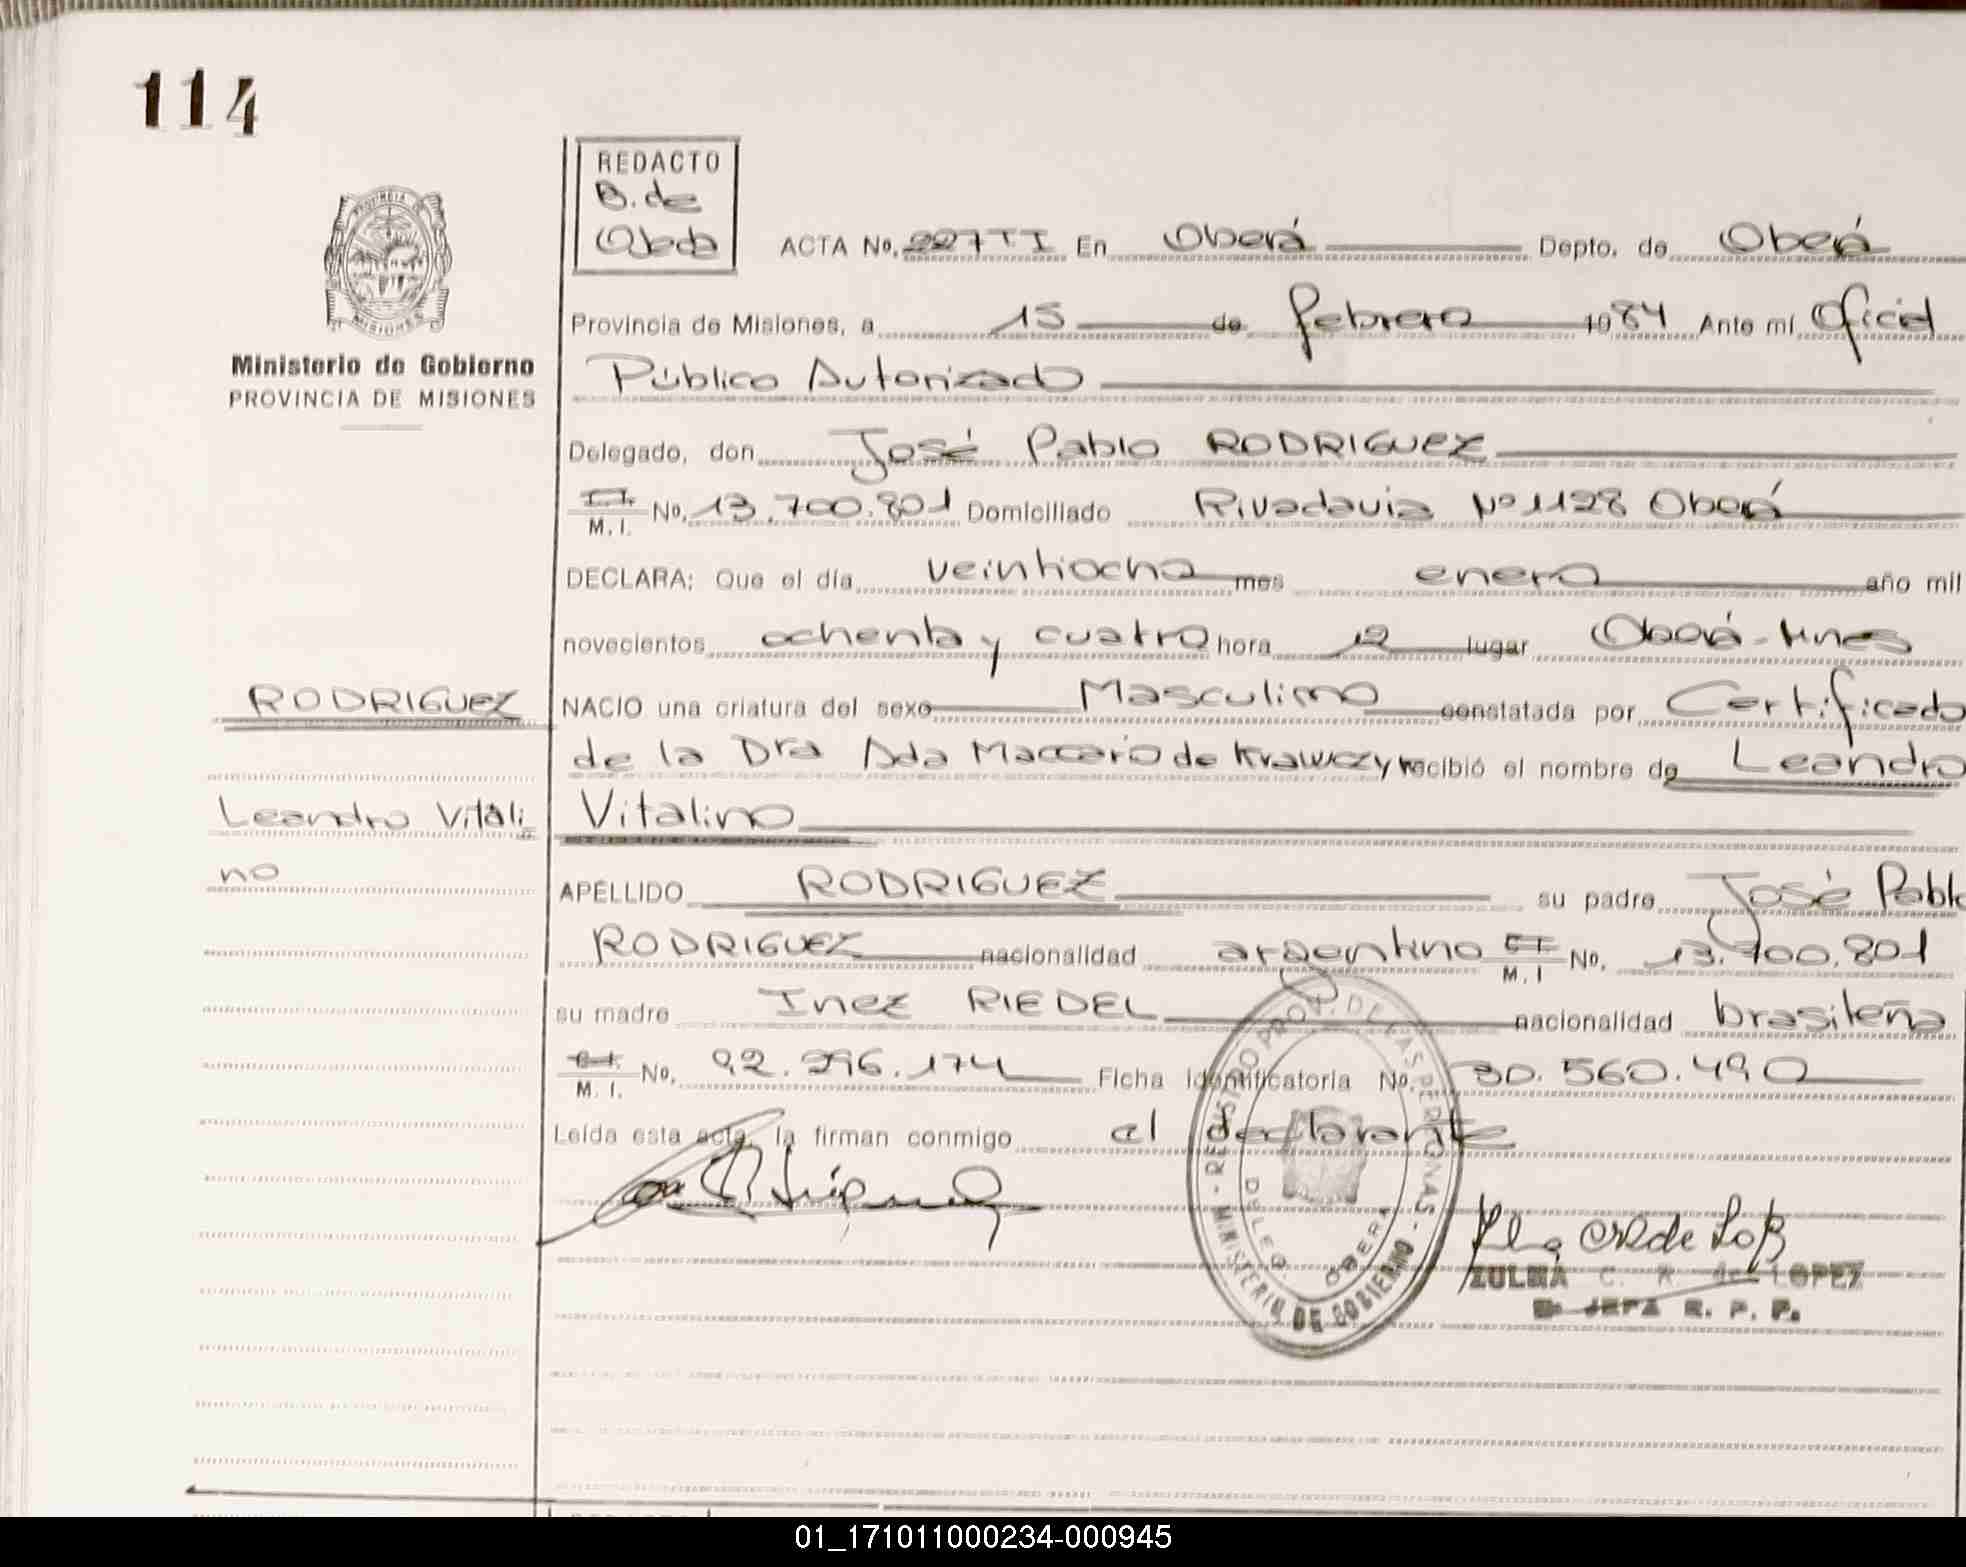 114
REDACTO
B. de
Ojeda
ACTA No. 227 T I En Oberá Depto. de Oberá
Provincia de Misiones, a 15 de febrero 1984 Ante mí Oficial
Público Autorizado
Ministerio de Gobierno
PROVINCIA DE MISIONES
Delegado, don José Pablo RODRIGUEZ
C.I. M.I. No. 13.700.801 Domiciliado Rivadavia Nº 1128 Oberá
DECLARA: Que el día veintiocho mes enero año mil
novecientos ochenta y cuatro hora 12 lugar Oberá - Mnes
RODRIGUEZ
NACIO una criatura del sexo Masculino constatada por Certificado
de la Dra Ada Maccario de Krawczy recibió el nombre de Leandro
Leandro Vitali
no
Vitalino
APELLIDO RODRIGUEZ su padre José Pablo
RODRIGUEZ nacionalidad argentino C.I. M.I No. 13.700.801
su madre Inez RIEDEL nacionalidad brasileña
C.I. M.I. No. 92.296.174 Ficha identificatoria No. 30.560.490
Leída esta acta, la firman conmigo el declarante
REGISTRO PROV. DE LAS PERSONAS - MINISTERIO DE GOBIERNO -
DELEG. OBERA
ZULMA C. R. de LOPEZ
JEFA R. P. P.
01_171011000234-000945